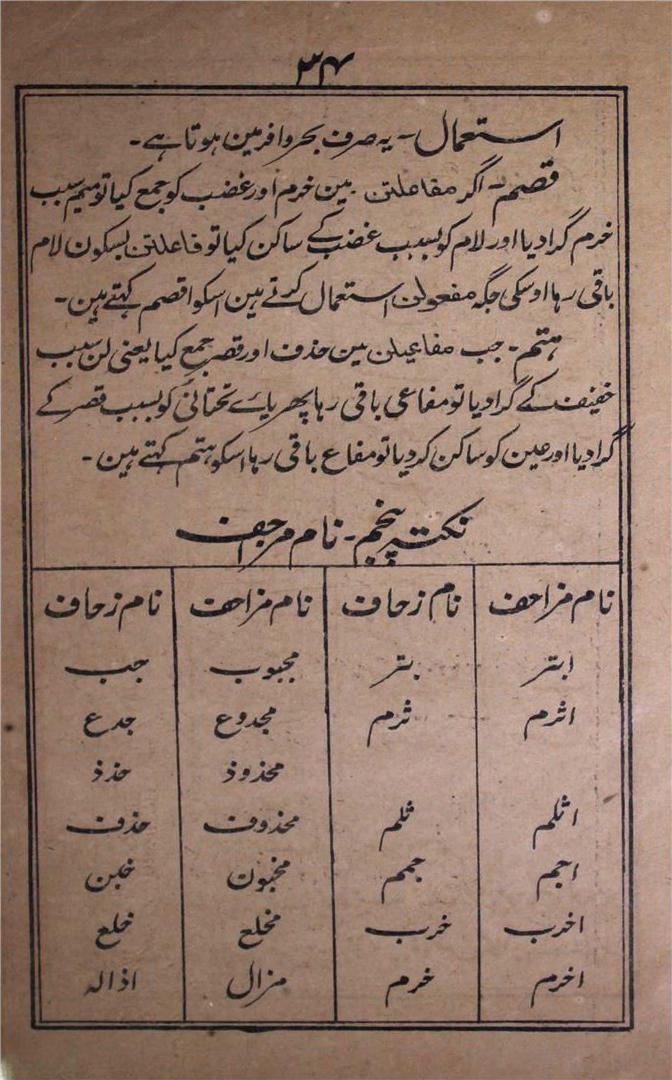 ۳۴
استعمال۔ یہ صرف بحر وافر مین ہوتا ہے۔
قصم۔ اگر مفاعلتن مین خرم اور غضب کو جمع کیا تو میم بسبب
خرم گرادیا اور لام کو بسبب غضب کے ساکن کیا تو فاعلتن بسکون لام
باقی رہا اوسکی جگہ مفعولن استعمال کرتے ہین اسکو اقصم کہتے ہین۔
ہتم۔ جب مفاعیلن مین حذف اور قصر جمع کیا یعنی لن سبب
خفیف کے گرادیا تو مفاعی باقی رہا پھر یاے تحتانی کو بسبب قصر کے
گرادیا اور عین کو ساکن کردیا تو مفاع باقی رہا اسکو ہتم کہتے ہین۔
نکتہ پنجم۔ نام مزاحف
نام مزاحف نام زحاف نام مزاحف نام زحاف
ابتر بتر مجبوب جب
اثرم ثرم مجدوع جدع
محذوذ حذذ
اثلم ثلم محذوف حذف
اجم جمم مخبون خبن
اخرب خرب مخلع خلع
اخرم خرم مزال اذالہ